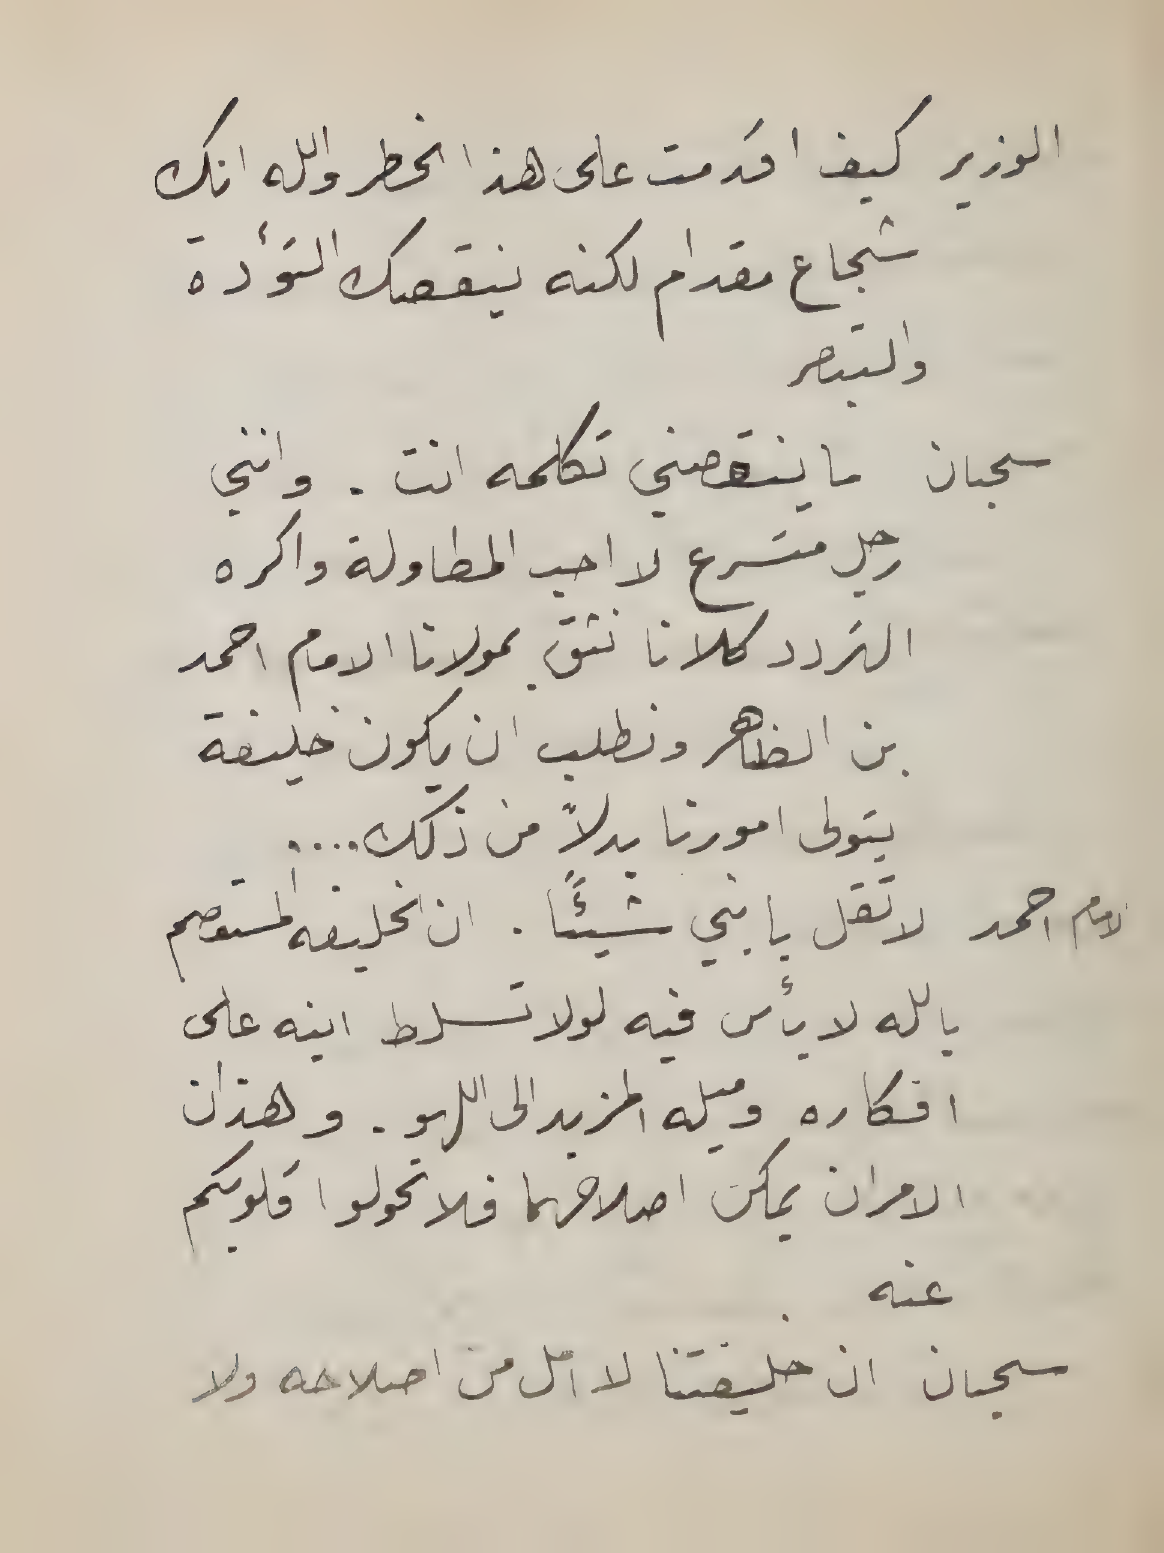 الوزير كيف اقدمت على هذا الخطر والله انك
شجاع مقدام لكنه ينقصك التؤدة
والتبصر
سبحان ما ينقصني تكلمه انت . وانني
رجل متسرع لا احب المطاولة واكره
التردد كلانا نثق بمولانا الامام احمد
بن الظاهر ونطلب ان يكون خليفة
يتولى امورنا بدلاً من ذلك ....
الامام احمد لا تقل يا بني شيئًا . ان الخليفه المستعصم
بالله لا بأس فيه لولا تسلط ابنه على
افكاره وميله المزيد الى اللهو . وهذان
الامران يمكن اصلاحهما فلا تحولوا قلوبكم
عنه
سبحان ان خليفتنا لا امل من اصلاحه ولا